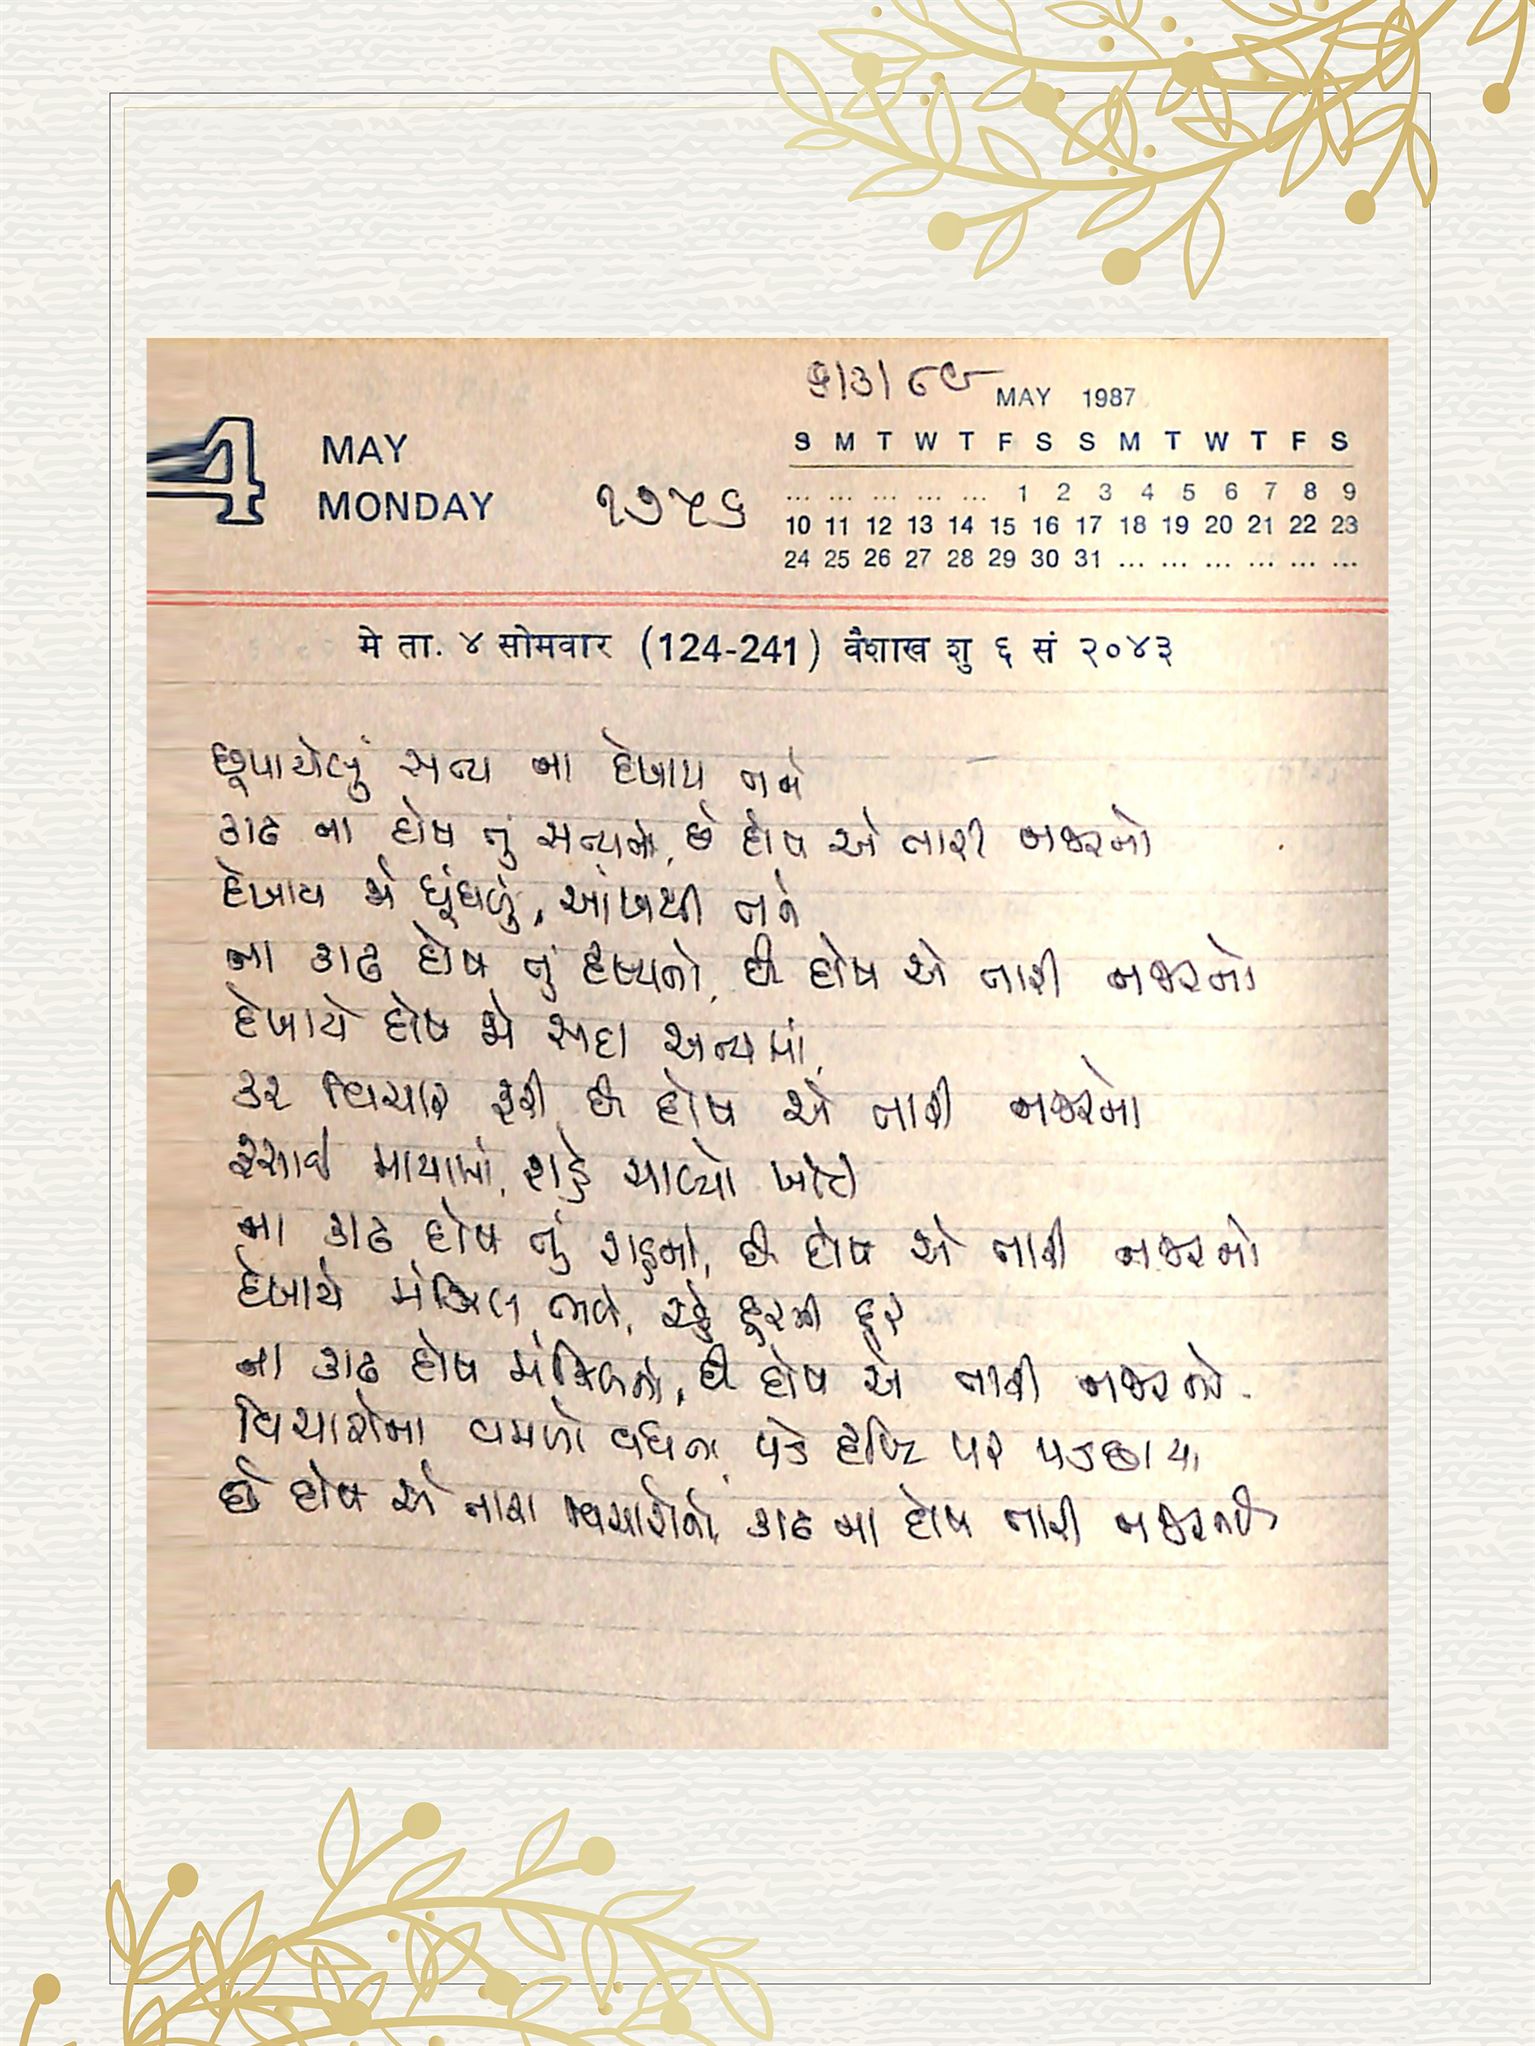 ૬/૩/૮૯
MAY 1987
4 MAY
MONDAY
૧૭૫૬
S M T W T F S S M T W T F S
... ... ... ... ... 1 2 3 4 5 6 7 8 9
10 11 12 13 14 15 16 17 18 19 20 21 22 23
24 25 26 27 28 29 30 31 ... ... ... ... ... ...
मे ता. ४ सोमवार (124-241) वैशाख शु ६ सं २०४३
છૂપાયેલું સત્ય ના દેખાય તને
કાઢ ના દોષ તું સત્યનો, છે દોષ એ તારી નજરનો
દેખાય જે ધૂંધળું, આંખથી તને
ના કાઢ દોષ તું દૃશ્યનો, છે દોષ એ તારી નજરનો
દેખાયે દોષ જે સદા અન્યમાં,
કર વિચાર ફરી છે દોષ એ તારી નજરનો
ફસાઈ માયામાં, રાહે ચાલ્યો ખોટી
ના કાઢ દોષ તું રાહનો, છે દોષ એ તારી નજરનો
દેખાયે મંઝિલ ભલે, રહે દૂરની દૂર
ના કાઢ દોષ મંઝિલનો, છે દોષ એ તારી નજરનો.
વિચારોના વમળો વધતા, પડે દૃષ્ટિ પર પડછાયા
છે દોષ એ તારા વિચારોનો, કાઢ ના દોષ તારી નજરનો